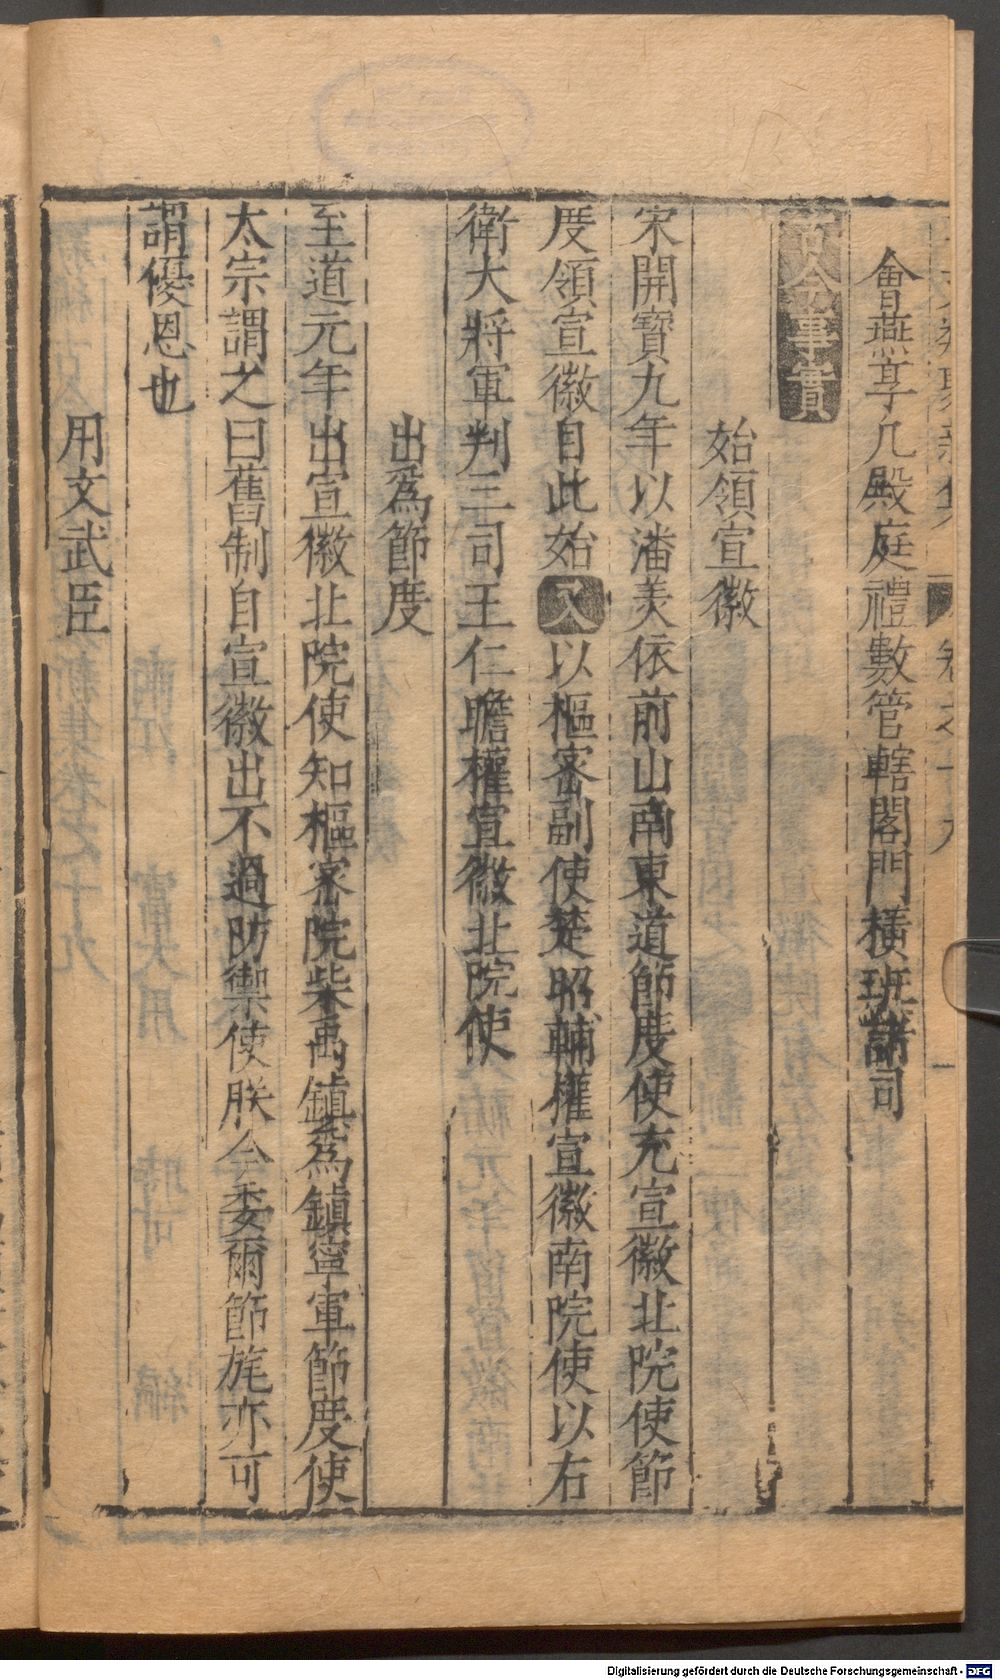 會燕亭凡殿庭禮數管轄閣門橫班諸司
古今事實
始領宣徽
宋開寶九年以潘美依前山南東道節度使充宣徽北院使節
度領宣徽自此始又以樞密副使楚昭輔權宣徽南院使以右
衛大將軍判三司王仁瞻權宣徽北院使
出爲節度
至道元年出宣徽北院使知樞密院柴禹鎮爲鎮寧軍節度使
太宗謂之曰舊制自宣徽出不過防禦使朕今委爾節旄亦可
謂優恩也
用文武臣
Digitalisierung gefördert durch die Deutsche Forschungsgemeinschaft - DFG